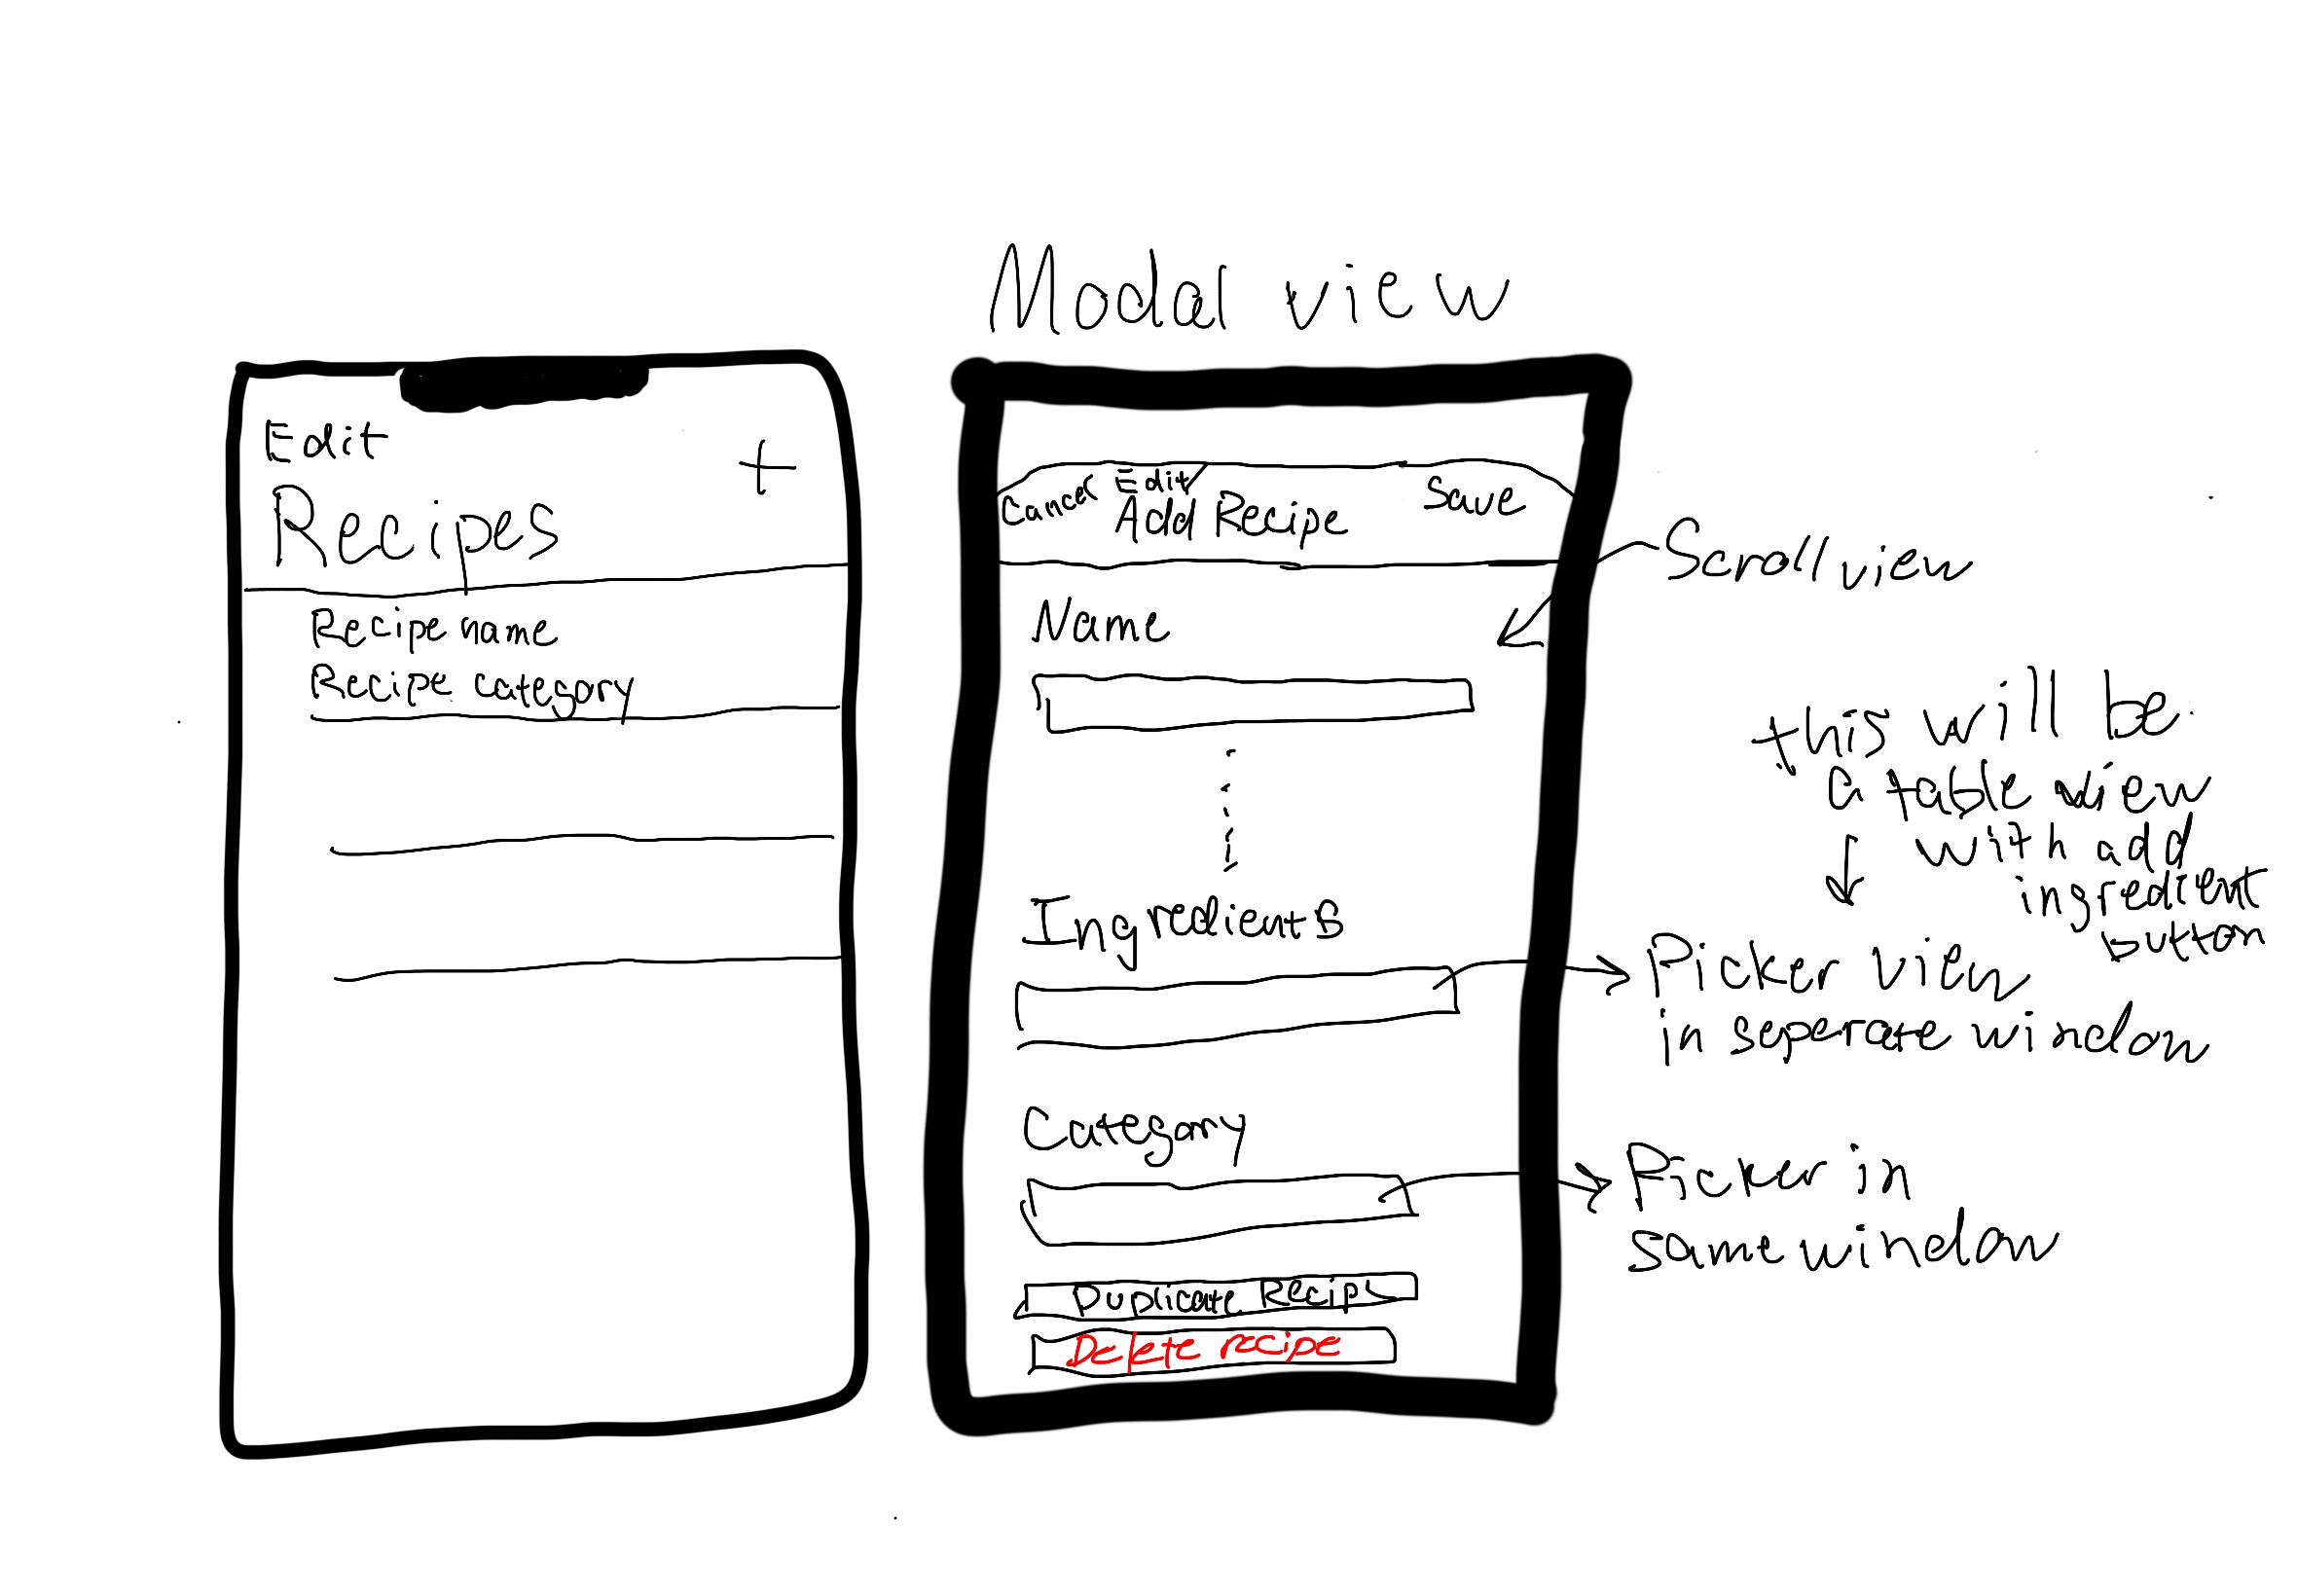 Modal view
Edit
+
Recipes
Recipe name
Recipe category
Cancel
Edit/
Add Recipe
Save
Scroll view
Name
this will be
a table view
with add
ingredient
button
Ingredients
Picker view
in seperate window
Category
Picker in
same window
Duplicate Recipe
Delete recipe